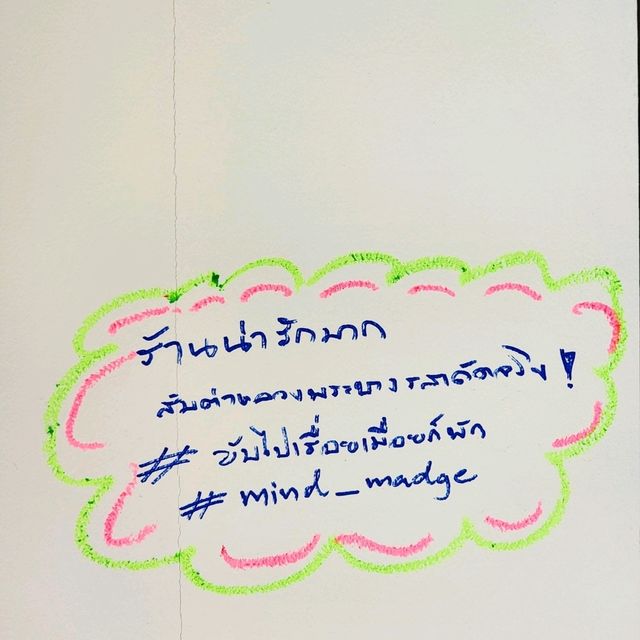 ร้านน่ารักมาก
ส้มตำหลวงพระบางรสเด็ดจริง!
# ขับไปเรื่อยเมื่อยก็พัก
# mind_madge